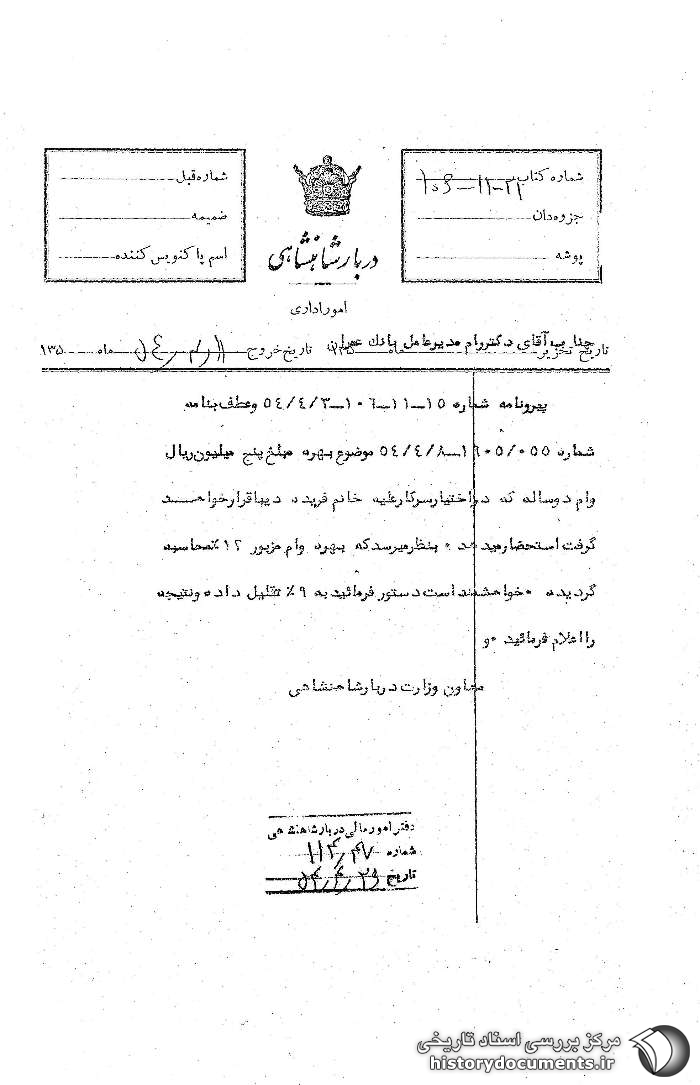 شماره کتاب ۱۰۶-۱۱-۲۱
جزوه‌دان
پوشه
دربار شاهنشاهی
شماره قبل
ضمیمه
اسم پاکنویس کننده
امور اداری
جناب آقای دکتر رام مدیرعامل بانک عمران
تاریخ تحریر ماه ۱۳۵ تاریخ خروج ماه ۱۳۵
پیرو نامه شماره ۱۵-۱۱-۱۰۶-۵۴/۴/۳ و عطف بنامه
شماره ۱۶۰۵/۰۵۵-۵۴/۴/۸ موضوع بهره مبلغ پنج میلیون ریال
وام دو ساله که در اختیار سرکار علیه خانم فریده دیبا قرار خواهد
گرفت استحضار میدهد ۰ بنظر میرسد که بهره وام مزبور ۱۲٪ محاسبه
گردیده ۰ خواهشمند است دستور فرمائید به ۹٪ تقلیل داده و نتیجه
را اعلام فرمائید ۰ و
معاون وزارت دربار شاهنشاهی
دفتر امور مالی دربار شاهنشاهی
شماره
تاریخ
مرکز بررسی اسناد تاریخی
historydocuments.ir